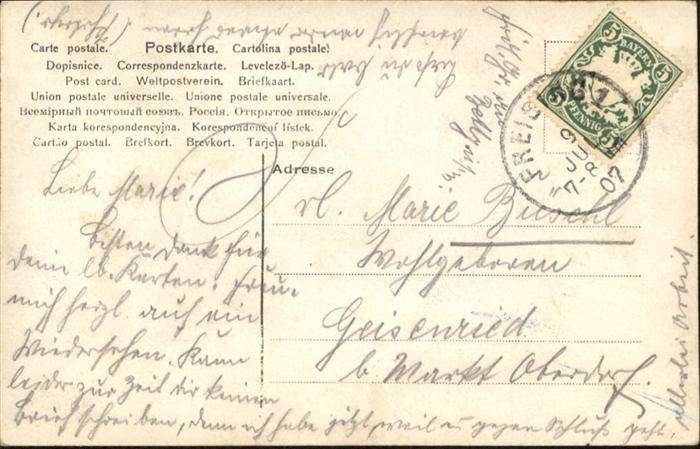 Carte postale. Postkarte. Cartolina postale.
Dopisnice. Correspondenzkarte. Levelező-Lap.
Post card. Weltpostverein. Briefkaart.
Union postale universelle. Unione postale universale.
Всемірный почтовый союзъ. Россія. Открытое письмо.
Karta korespondencyjna. Korespondenční lístek.
Cartão postal. Brefkort. Brevkort. Tarjeta postal.
Adresse
BAYERN
5 5
PFENNIG
FREISING 1
7-8
07
Frl. Marie Büschl
Wohlgeboren
Geisenried
b. Markt Oberdorf.
Liebe Marie!
Besten Dank für
deine lb. Karten. Freu
mich herzl. auf ein
Wiedersehen. Kann
leider zur Zeit dir keinen
Brief schreiben, denn ich habe jetzt, weil es gegen Schluß geht,
allerlei Arbeit.